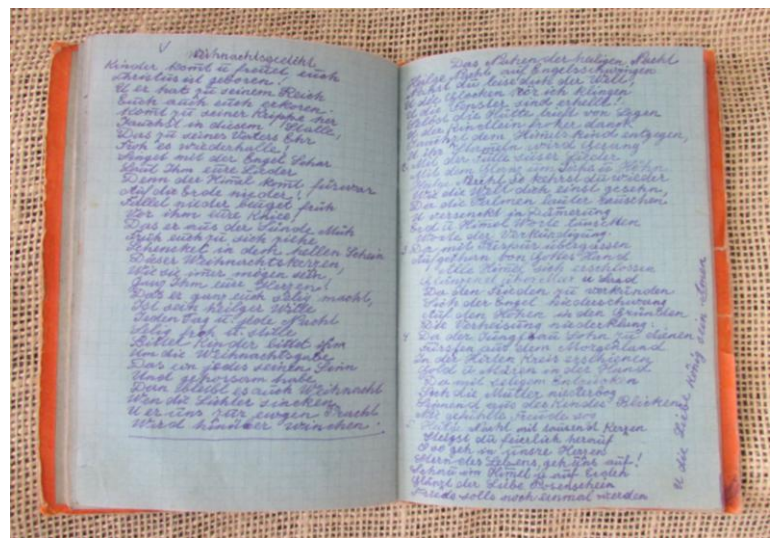 Weihnachtsgedicht
Kinder komt u freuet euch
Christus ist geboren!
U er hat zu seinem Reich
Euch auch euch erkoren.
Komt zu seiner Krippe her
Jauchzt in diesem Stalle,
Das zu seines Vaters Ehr
Sich es wiederhalle!
Singet mit der Engel Schar
Laut Ihm eure Lieder
Denn der Himel komt fürwar
Auf die Erde nieder!
Fallet nieder beuget früh
Vor ihm eure Kniee,
Das er aus der Sünde Müh
Auch euch zu sich ziehe
Schencket in dem hellen Schein
Dieser Weihnachtskerzen,
Wie sie imer mögen sein
Ganz Ihm eure Herzen!
Das er ganz euch selig macht,
Ist sein heilger Wille
Jeden Tag u jede Nacht
Selig froh u stille
Bittet Kinder bittet Ihm
Um die Weihnachtsgabe
Das ein jedes seinen Sinn
Und gehorsam habe
Dan bleibt es auch Weihnacht
Wen die Lichter sincken
U er uns zur ewgen Pracht
Wird hinüber wincken!
Das Nahen der heiligen Nacht
Heilge Nacht auf Engelsschwingen
Nahst du leise dich der Welt,
U die Glocken hör ich klingen
U die Fenster sind erhellt!
Selbst die Hütte trieft von Segen
U der Kindlein froher danck
Jauchzt dem Himels kind entgegen,
U ihr Stameln wird Gesang
2. Mit der Fülle süser Lieder
Mit dem Glanz um Tal u Höhn
Heilge Nacht so kehrst du wieder
Wie die Welt dich einst gesehn,
Da die Palmen lauter rauschen
U versenkt in Dämerung
Erd u Himel Worte tauschten
Worte der Verkündigung
3. Da mit Purpur übergossen
Aufgethan von Gottes Hand
Alle Himel sich erschlossen
Glänzend über Mer u Land
Den den Frieden zu verkünden
Sich der Engel niederschwung
Auf den Höhen in den Gründen
Die Verheisung niederklang.
4 Da der Jungfrau Sohn zu dienen
Fürsten aus dem Morgenland
In der Hirten Kreis erschienen
Gold u Mirren in der Hand
Da mit seligem Entzücken
Sich die Mutter niederbog
Sinend aus des Kindes Blicken
Nie gefühlte Freude sog
5. Heilge Nacht mit tausend Kerzen
Steigst du feierlich herauf
O so geh in unsere Herzen
Stern des Lebens, geh uns auf!
Schau im Himel u auf Erden
Glänzt der Liebe Rosenschein
Friede solls noch einmal werden
U die Liebe König sein. Amen